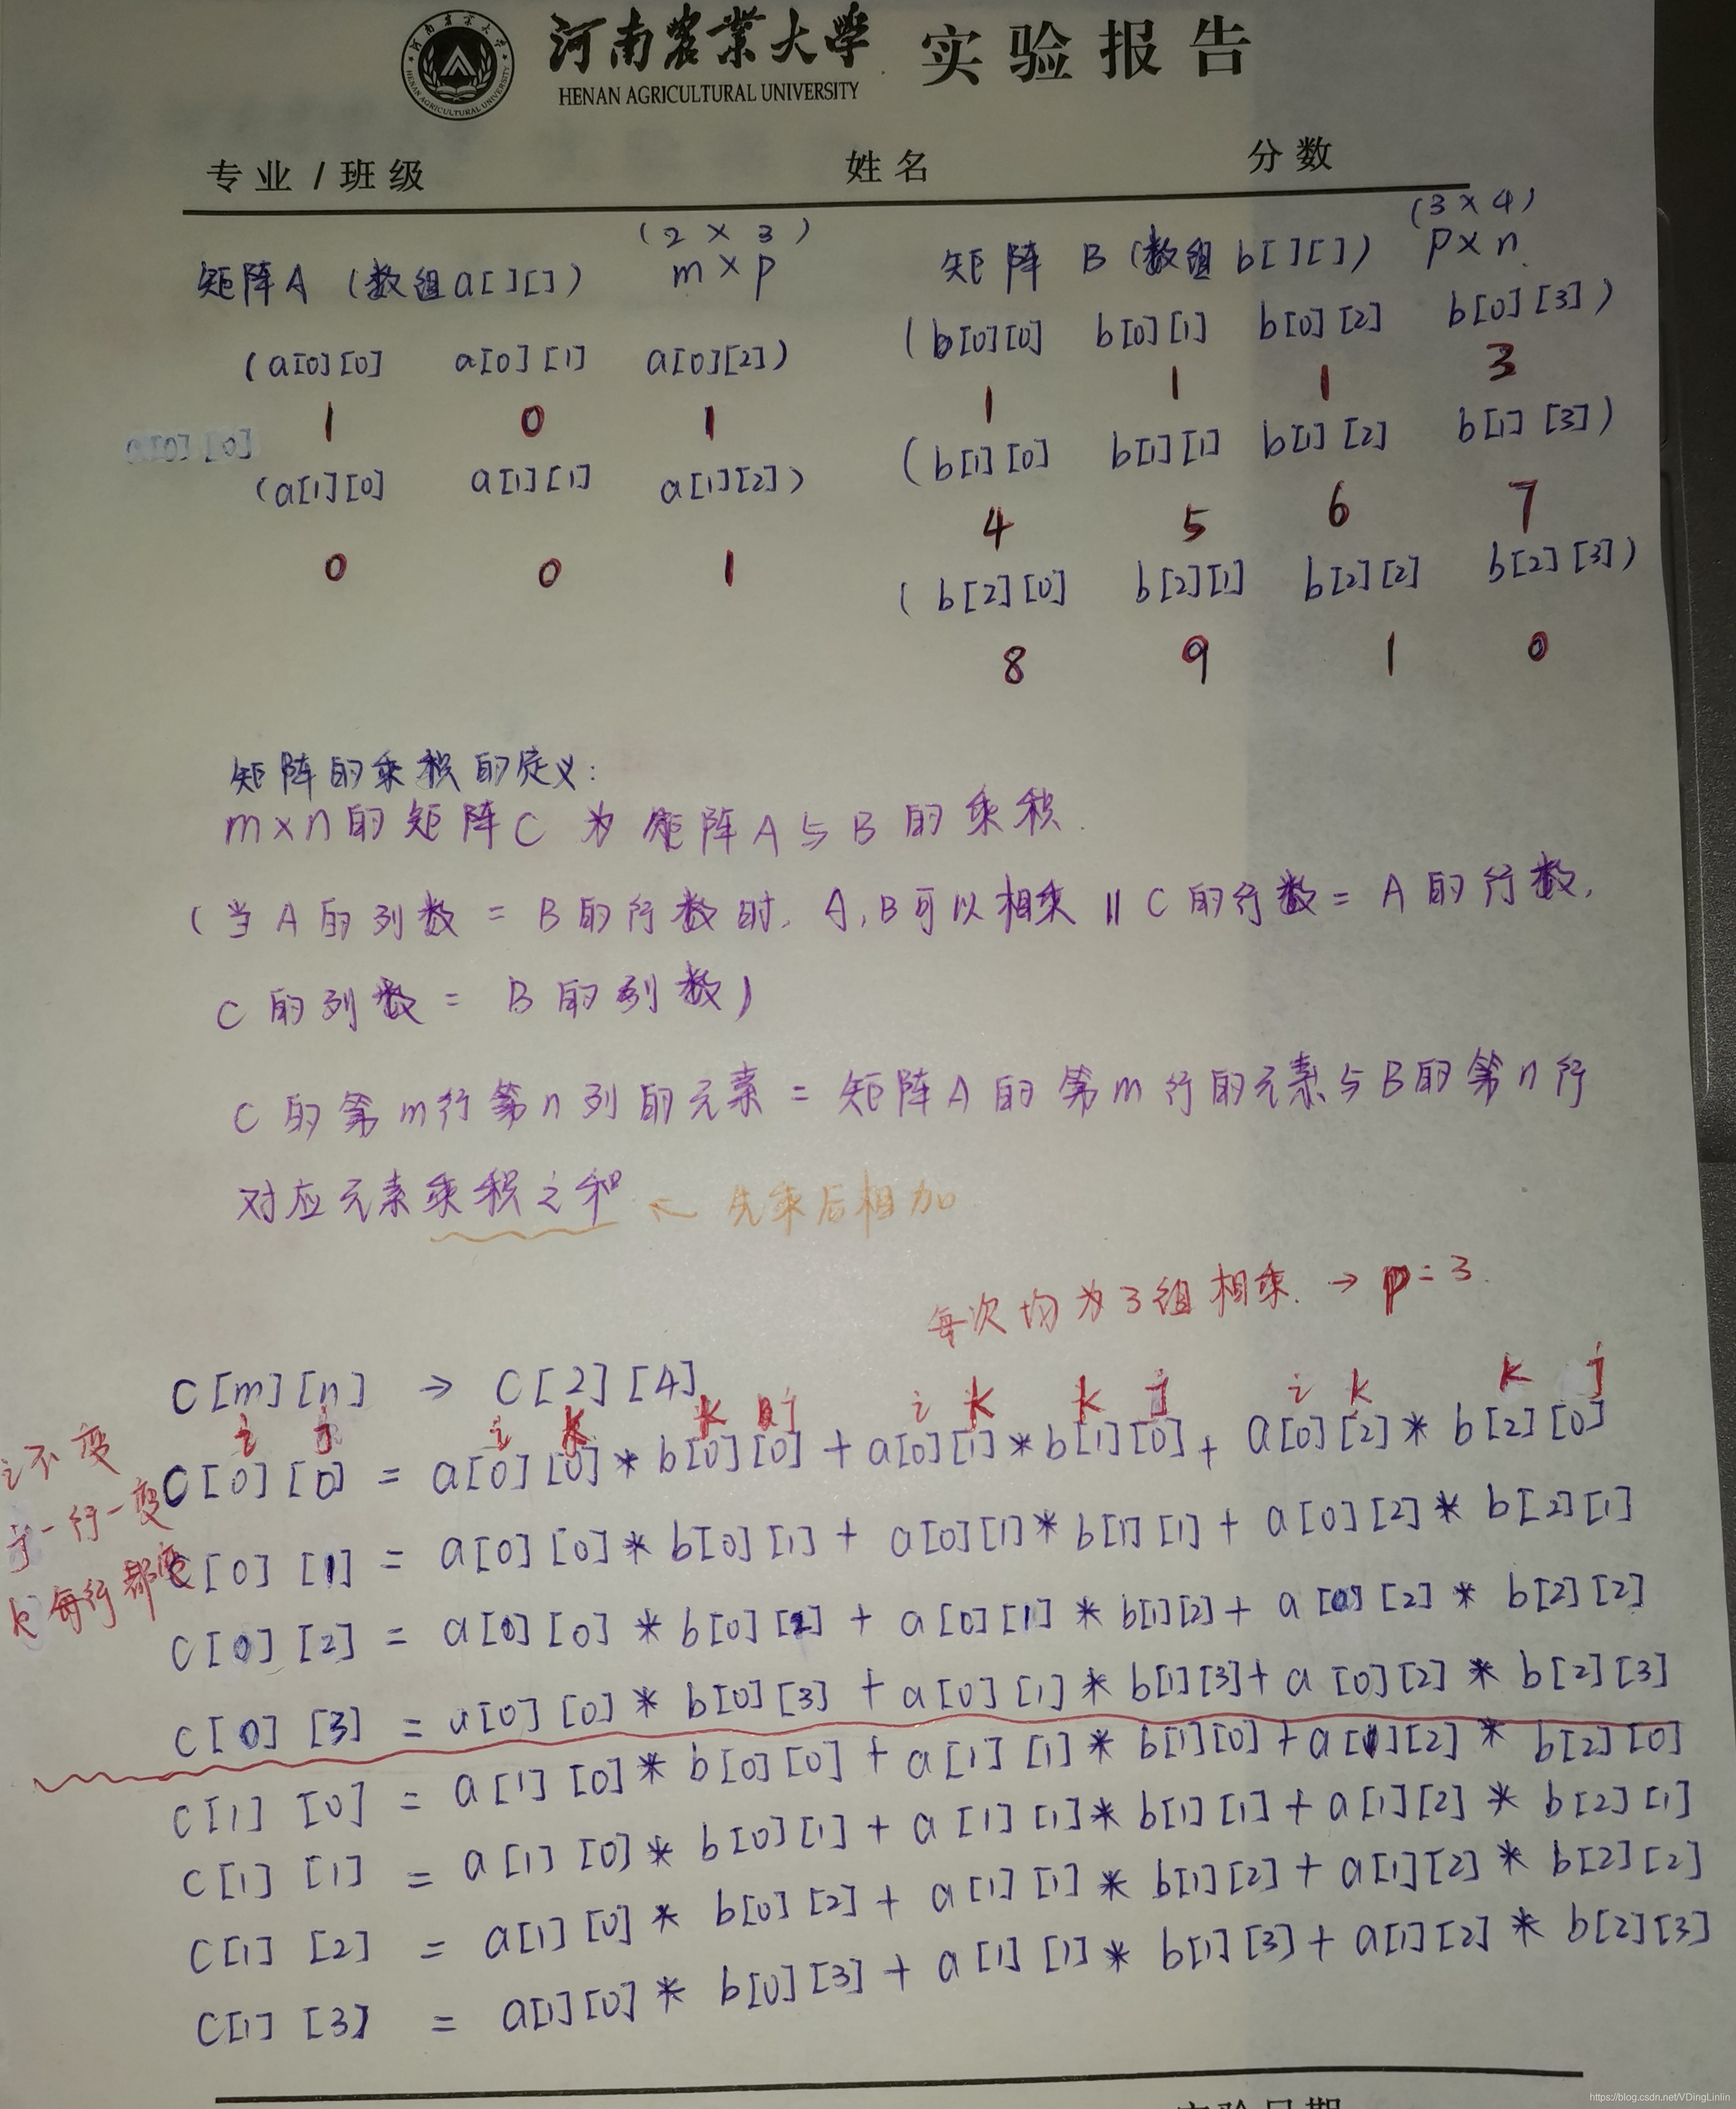 河南农业大学 实验报告
HENAN AGRICULTURAL UNIVERSITY
专业/班级 姓名 分数
(2×3) (3×4)
矩阵A (数组a[][]) m×p 矩阵 B (数组b[][]) p×n
(a[0][0] a[0][1] a[0][2]) (b[0][0] b[0][1] b[0][2] b[0][3])
1 0 1 1 1 1 3
a[0][0]
(a[1][0] a[1][1] a[1][2]) (b[1][0] b[1][1] b[1][2] b[1][3])
0 0 1 4 5 6 7
(b[2][0] b[2][1] b[2][2] b[2][3])
8 9 1 0
矩阵的乘积的定义:
m×n的矩阵C 为 矩阵A与B的乘积.
(当A的列数 = B的行数时, A,B可以相乘 || C的行数 = A的行数,
C的列数 = B的列数)
C的第m行第n列的元素 = 矩阵A的第m行的元素与B的第n行
对应元素乘积之和 ← 先乘后相加
每次均为3组相乘. → p=3.
C[m][n] → C[2][4]
i j i k k j i k k j i k k j
i不变
j一行一变
k每行都变
C[0][0] = a[0][0]*b[0][0] + a[0][1]*b[1][0] + a[0][2]*b[2][0]
C[0][1] = a[0][0]*b[0][1] + a[0][1]*b[1][1] + a[0][2]*b[2][1]
C[0][2] = a[0][0]*b[0][2] + a[0][1]*b[1][2] + a[0][2]*b[2][2]
C[0][3] = a[0][0]*b[0][3] + a[0][1]*b[1][3] + a[0][2]*b[2][3]
C[1][0] = a[1][0]*b[0][0] + a[1][1]*b[1][0] + a[1][2]*b[2][0]
C[1][1] = a[1][0]*b[0][1] + a[1][1]*b[1][1] + a[1][2]*b[2][1]
C[1][2] = a[1][0]*b[0][2] + a[1][1]*b[1][2] + a[1][2]*b[2][2]
C[1][3] = a[1][0]*b[0][3] + a[1][1]*b[1][3] + a[1][2]*b[2][3]
https://blog.csdn.net/VDingLinlin